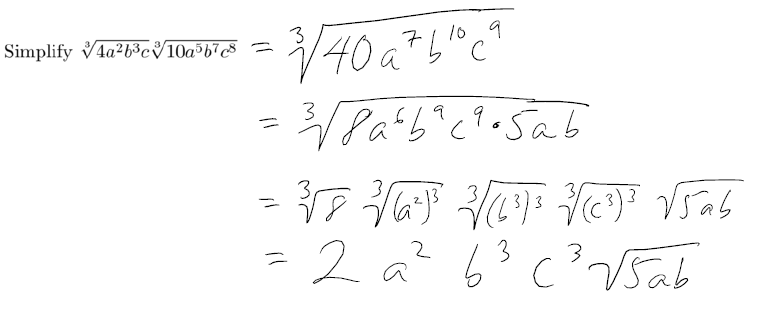 Simplify ∛(4a²b³c) ∛(10a⁵b⁷c⁸) = ∛(40a⁷b¹⁰c⁹)
= ∛(8a⁶b⁹c⁹·5ab)
= ∛8 ∛((a²)³) ∛((b³)³) ∛((c³)³) √(5ab)
= 2 a² b³ c³ √(5ab)